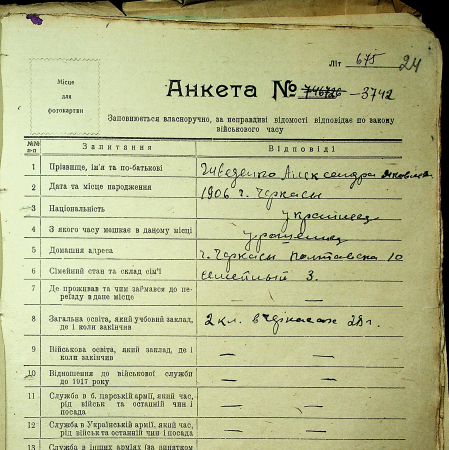 Літ 675 24
Місце
для
фотокартки
Анкета № 746726 — 3742
Заповнюється власноручно, за неправдиві відомості відповідає по закону
військового часу
№№ п-п Запитання Відповіді
1 Прізвище, ім'я та по-батькові Александра Яковлевна
2 Дата та місце народження 1906 г. Черкасы
3 Національність украинец
4 З якого часу мешкає в даному місці уроженец
5 Домашня адреса г. Черкасы Полтавска 10
6 Сімейний стан та склад сім'ї семейный 3.
7 Де проживав та чим займався до пе-
реїзду в дане місце
8 Загальна освіта, який учбовий заклад,
де і коли закінчив 2 кл. в Черкасах
9 Військова освіта, який заклад, де і
коли закінчив — —
10 Відношення до військової служби
до 1917 року — —
11 Служба в б. царській армії, який час,
рід військ та останній чин і
посада — —
12 Служба в Українській армії, який час,
рід військ та останній чин і посада — —
13 Служба в інших арміях (за винятком